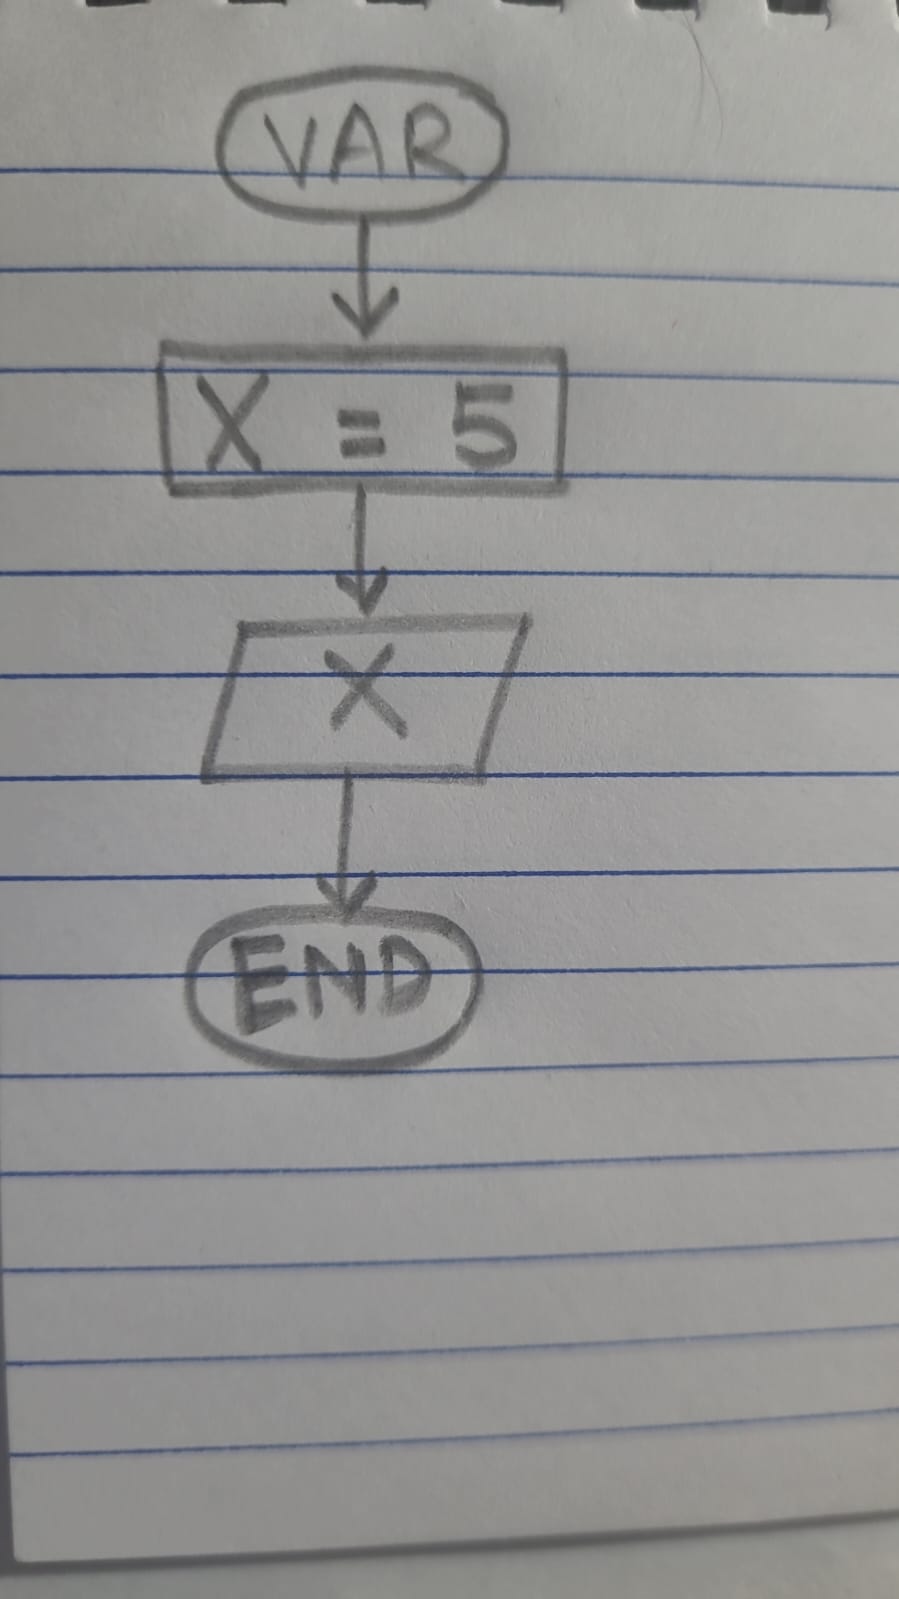 VAR
X = 5
X
END